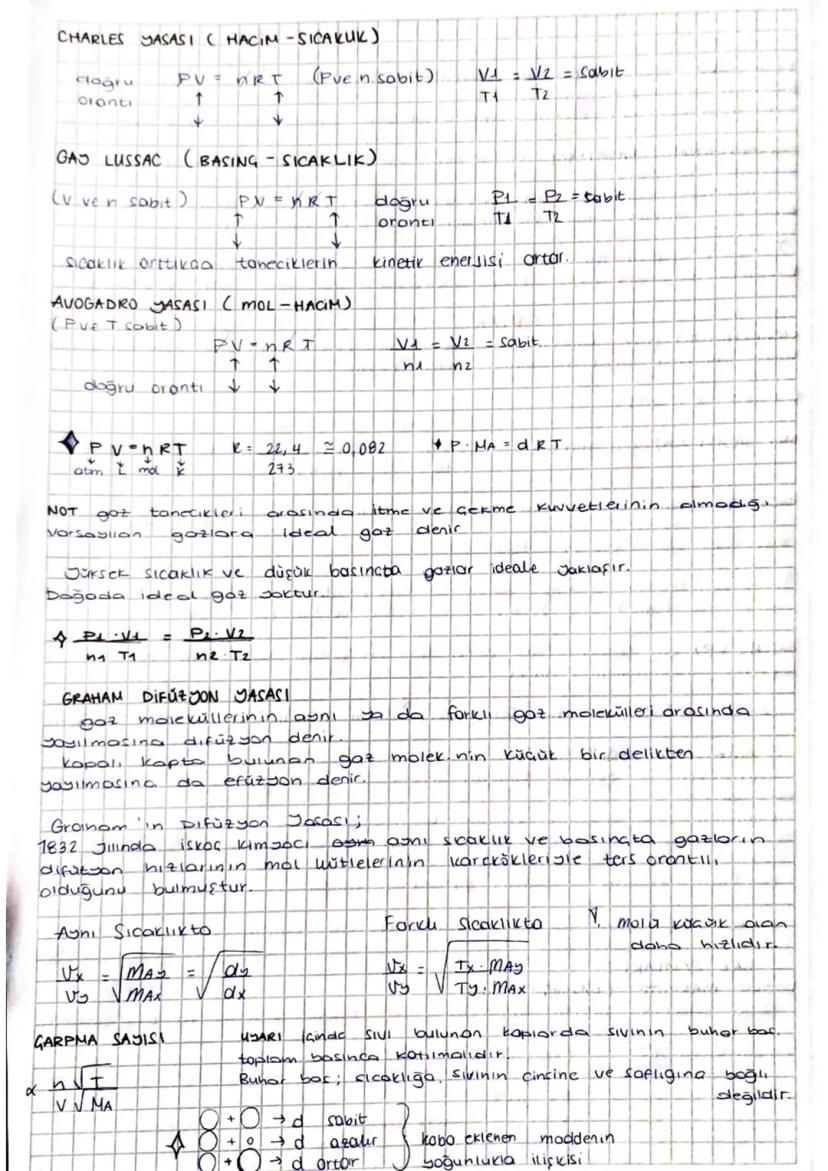 CHARLES YASASI ( HACİM - SICAKLIK )
doğru PV = nRT (P ve n sabit) V1 = V2 = Sabit
orantı ↑ ↑ T1 T2
↓ ↓
GAY LUSSAC ( BASINÇ - SICAKLIK )
(V ve n sabit) PV = nRT doğru P1 = P2 = sabit
↑ ↑ orantı T1 T2
↓ ↓
Sıcaklık arttıkça taneciklerin kinetik enerjisi artar.
AVOGADRO YASASI ( MOL - HACİM )
(P ve T sabit)
PV = nRT V1 = V2 = Sabit
↑ ↑ n1 n2
doğru orantı ↓ ↓
PV = nRT R = 22,4 ≅ 0,082 P. MA = d RT
atm L mol K 273
NOT gaz tanecikleri arasında itme ve çekme kuvvetlerinin olmadığı
varsayılan gazlara ideal gaz denir
Yüksek sıcaklık ve düşük basınçta gazlar ideale yaklaşır.
Doğada ideal gaz yoktur.
P1 . V1 = P2. V2
n1 T1 n2 . T2
GRAHAM DİFÜZYON YASASI
gaz moleküllerinin aynı ya da farklı gaz molekülleri arasında
yayılmasına difüzyon denir.
kapalı kapta bulunan gaz molek. nin küçük bir delikten
yayılmasına da efüzyon denir.
Graham 'ın Difüzyon Yasası;
1832 yılında iskoç kimyacı aynı sıcaklık ve basınçta gazların
difüzyon hızlarının mol kütlelerinin karekökleriyle ters orantılı
olduğunu bulmuştur.
Aynı Sıcaklıkta Farklı Sıcaklıkta molü küçük olan
daha hızlıdır.
Vx = √MAy = √dy Vx = √Tx . MAy
Vy √MAx dx Vy Ty . MAx
ÇARPMA SAYISI UYARI içinde sıvı bulunan kaplarda sıvının buhar bas.
toplam basınca katılmalıdır.
α n√T Buhar bas; sıcaklığa, sıvının cinsine ve saflığına bağlı
V√MA değildir.
○ + ○ → d sabit
○ + o → d azalır } kaba eklenen maddenin
○ + ○ → d artar yoğunlukla ilişkisi